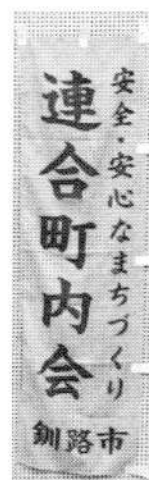 安全・安心なまちづくり
連合町内会
釧路市